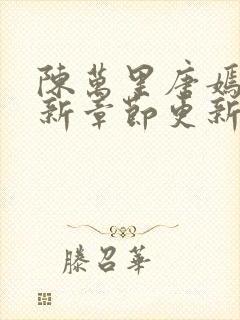 陳萬里唐嫣
新章節更新
滕召華